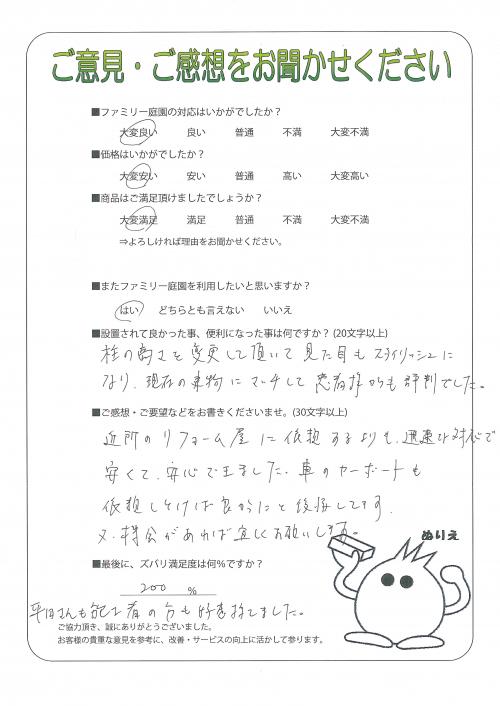 ご意見・ご感想をお聞かせください
■ファミリー庭園の対応はいかがでしたか？
大変良い 良い 普通 不満 大変不満
■価格はいかがでしたか？
大変安い 安い 普通 高い 大変高い
■商品はご満足頂けましたでしょうか？
大変満足 満足 普通 不満 大変不満
⇒よろしければ理由をお聞かせください。
■またファミリー庭園を利用したいと思いますか？
はい どちらとも言えない いいえ
■設置されて良かった事、便利になった事は何ですか？(20文字以上)
柱の高さを変更して頂いて見た目もスタイリッシュに
なり、現在の建物にマッチして患者様からも評判でした。
■ご感想・ご要望などをお書きくださいませ。(30文字以上)
近所のリフォーム屋に依頼するよりも、迅速な対応で
安くて、安心できました。車のカーポートも
依頼しとけば良かったと後悔してます。
又、機会があれば宜しくお願いします。
ぬりえ
■最後に、ズバリ満足度は何％ですか？
200 ％
平田さんも施工者の方も好感持てました。
ご協力頂き、誠にありがとうございました。
お客様の貴重な意見を参考に、改善・サービスの向上に活かして参ります。